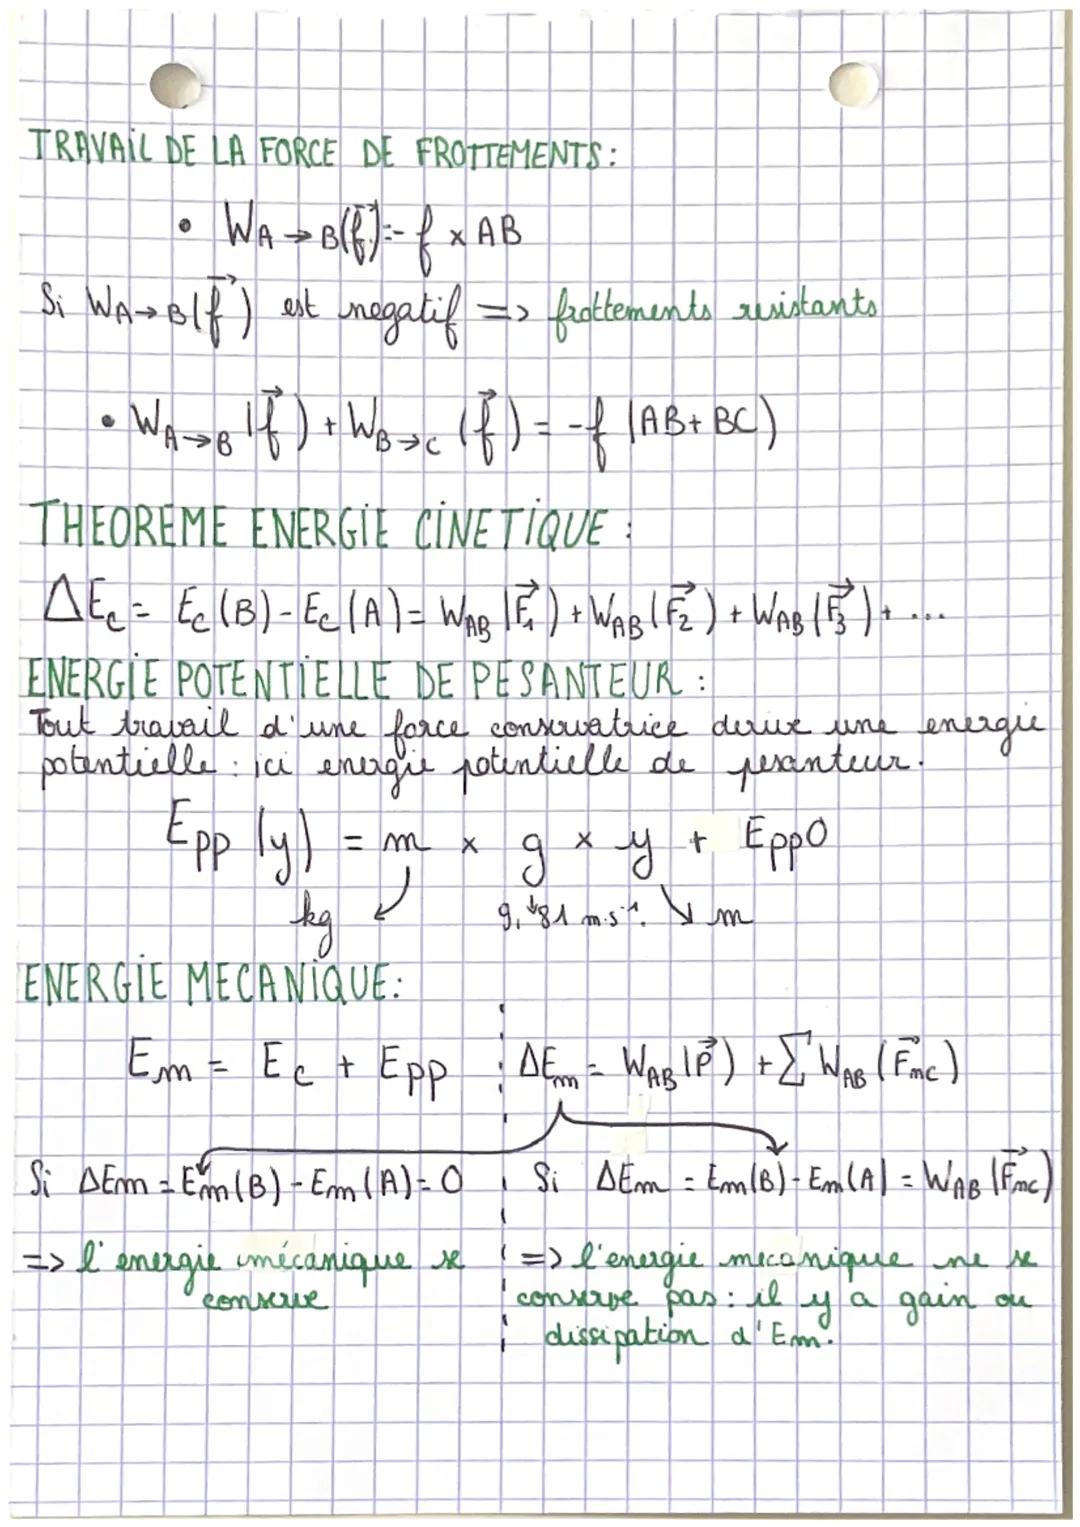 TRAVAIL DE LA FORCE DE FROTTEMENTS :
• W A → B(f⃗) = - f x AB
Si W A → B(f⃗) est negatif => frottements resistants
• W A → B (f⃗) + W B → C (f⃗) = -f (AB + BC)
THEOREME ENERGIE CINETIQUE :
ΔEc = Ec (B) - Ec (A) = WAB (F⃗1) + WAB (F⃗2) + WAB (F⃗3) + ...
ENERGIE POTENTIELLE DE PESANTEUR :
Tout travail d'une force conservatrice derive une energie
potentielle : ici energie potentielle de pesanteur.
Epp (y) = m x g x y + Epp0
kg 9,81 m.s⁻¹. m
ENERGIE MECANIQUE:
Em = Ec + Epp ΔEm = WAB (P⃗) + ∑ WAB (F⃗mc)
Si ΔEm = Em (B) - Em (A) = 0 Si ΔEm = Em(B) - Em (A) = WAB (F⃗mc)
=> l'energie mécanique se => l'energie mecanique ne se
conserve conserve pas : il y a gain ou
dissipation d'Em.